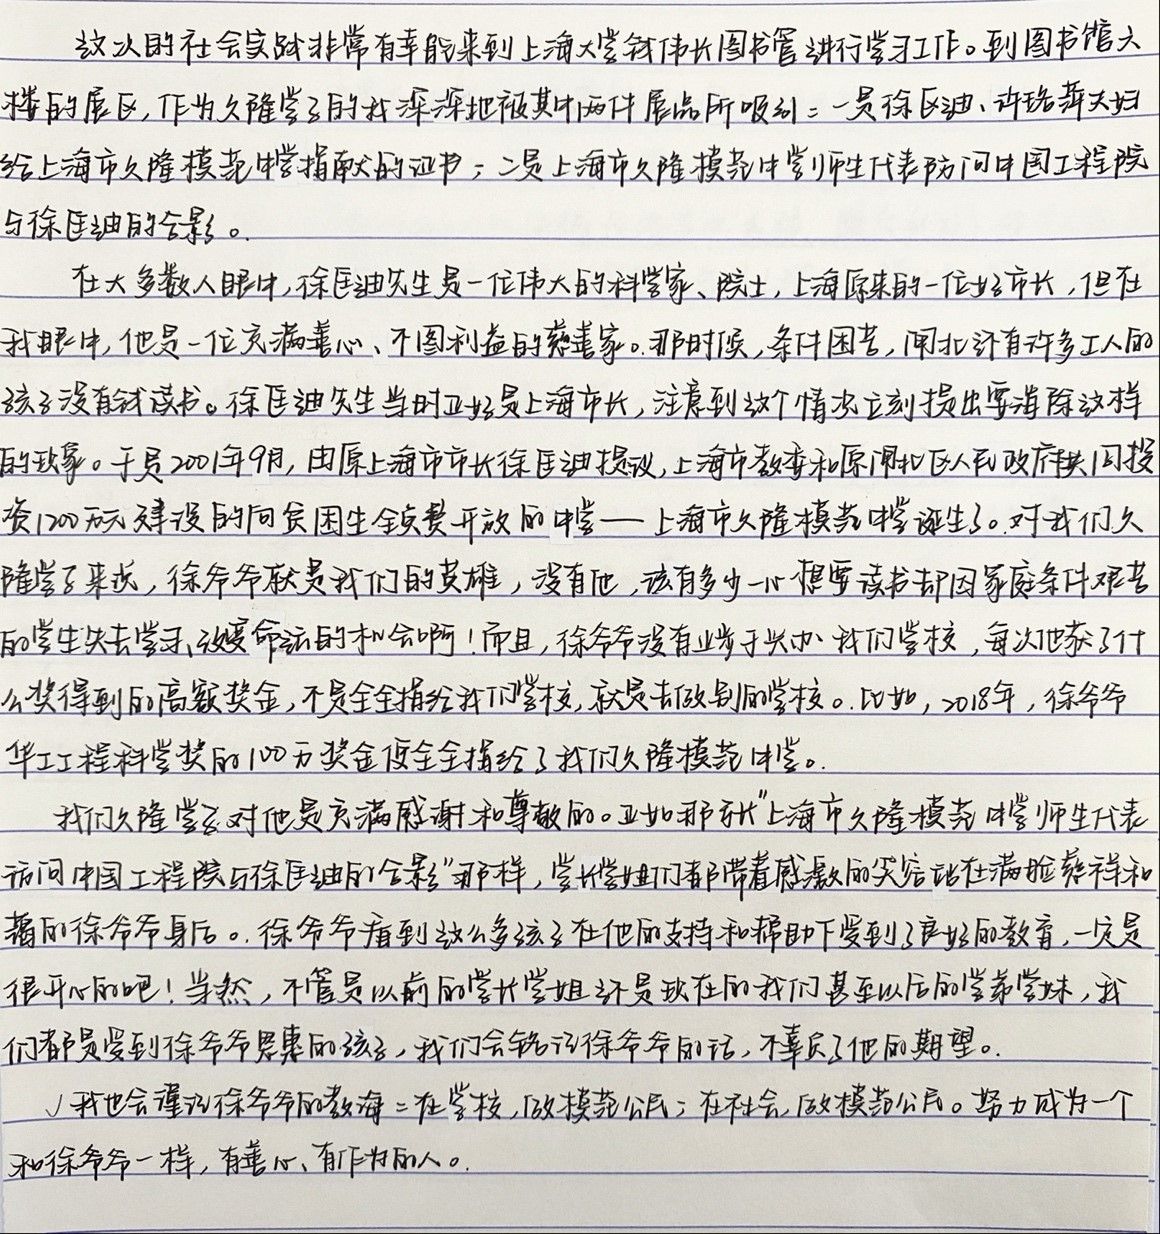 这次的社会实践非常有幸能来到上海大学钱伟长图书馆进行学习工作。到图书馆六
楼的展区,作为久隆学子的我深深地被其中两件展品所吸引：一是徐匡迪、许珞萍夫妇
给上海市久隆模范中学捐献的证书；二是上海市久隆模范中学师生代表访问中国工程院
与徐匡迪的合影。
在大多数人眼中,徐匡迪先生是一位伟大的科学家、院士,上海原来的一位好市长,但在
我眼中,他是一位充满善心、不图利益的慈善家。那时候,条件困苦,闸北还有许多工人的
孩子没有钱读书。徐匡迪先生当时正好是上海市长,注意到这个情况立刻提出要消除这样
的现象。于是2001年9月,由原上海市市长徐匡迪提议,上海市教委和原闸北区人民政府共同投
资1200万元建设的向贫困生全免费开放的中学——上海市久隆模范中学诞生了。对我们久
隆学子来说,徐爷爷就是我们的英雄,没有他,该有多少一心想要读书却因家庭条件艰苦
的学生失去学习、改变命运的机会啊！而且,徐爷爷没有止步于兴办我们学校,每次他获了什
么奖得到的高额奖金,不是全全捐给我们学校,就是去做别的学校。比如,2018年,徐爷爷
华工工程科学奖的100万奖金便全全捐给了我们久隆模范中学。
我们久隆学子对他是充满感谢和尊敬的。正如那张“上海市久隆模范中学师生代表
访问中国工程院与徐匡迪的合影”那样,学长学姐们都带着感激的笑容站在满脸慈祥和
蔼的徐爷爷身后。徐爷爷看到这么多孩子在他的支持和帮助下受到了良好的教育,一定是
很开心的吧！当然,不管是以前的学长学姐还是现在的我们甚至以后的学弟学妹,我
们都是受到徐爷爷恩惠的孩子,我们会铭记徐爷爷的话,不辜负了他的期望。
我也会谨记徐爷爷的教诲：在学校,做模范公民；在社会,做模范公民。努力成为一个
和徐爷爷一样,有善心、有作为的人。